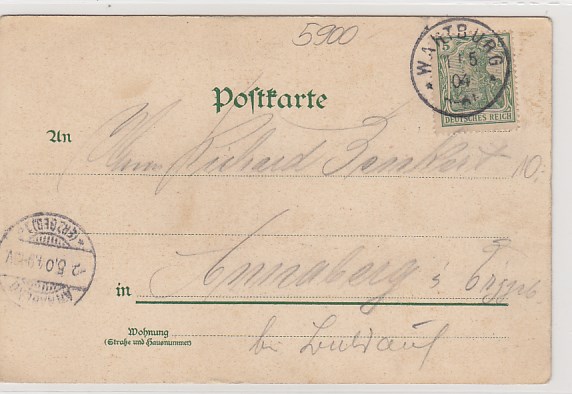 5900
* WARTBURG *
1 5
04
DEUTSCHES REICH
Postkarte
An Herrn Richard
10.-
(ERZGEB.)
2.5.04
in Annaberg i. Erzgeb
Wohnung
(Straße und Hausnummer)
bei